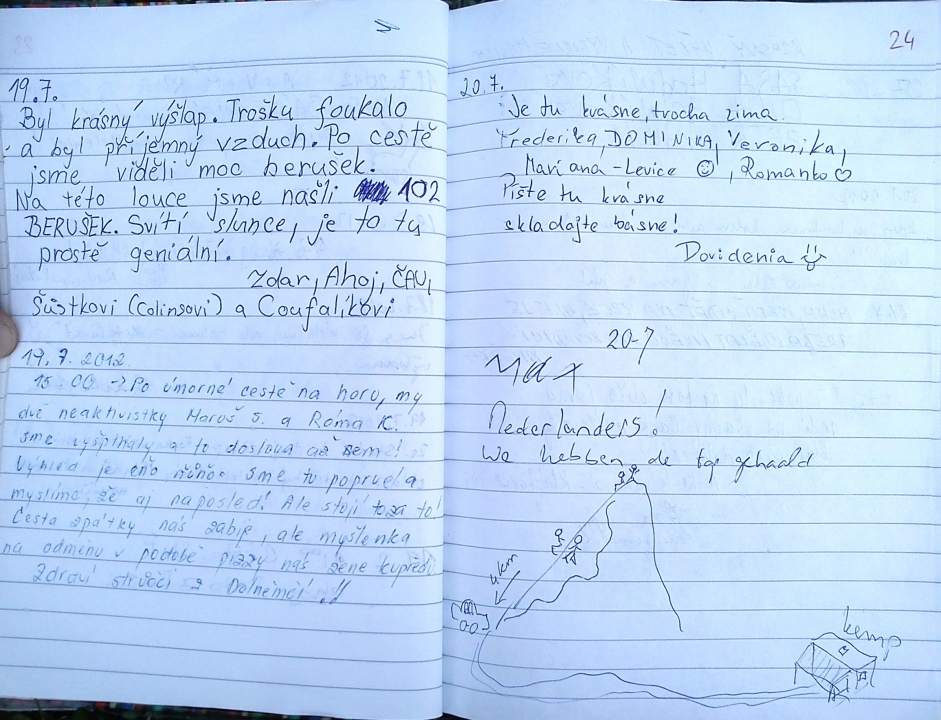 19.7.
Byl krásný výšlap. Trošku foukalo
a byl příjemný vzduch. Po cestě
jsme viděli moc berušek.
Na této louce jsme našli 102
BERUŠEK. Svítí slunce, je to tu
prostě geniální.
Zdar, Ahoj, ČAU,
Šustkovi (Colinsovi) a Coufalíkovi
19.7.2012
15:00 → Po úmorné ceste na horu, my
dvě neaktivistky Maruš J. a Roma K.
sme vyšplhaly a to doslova až sem!
je sme tu poprvé a
myslíme, že aj naposled! Ale stojí to za to!
Cesta zpátky nás zabije, ale myšlenka
na odměnu v podobě pizzy nás žene kupředu
Zdraví z Dolněmčí!!
24
20.7.
Je tu krásne, trocha zima.
Frederika, DOMINIKA, Veronika,
Mariana-Levice ☺, Romanko ♡
Píšte tu krásne
skladajte básne!
Dovidenia
20-7
Max
Nederlanders!
We hebben de top gehaald
4km
kemp